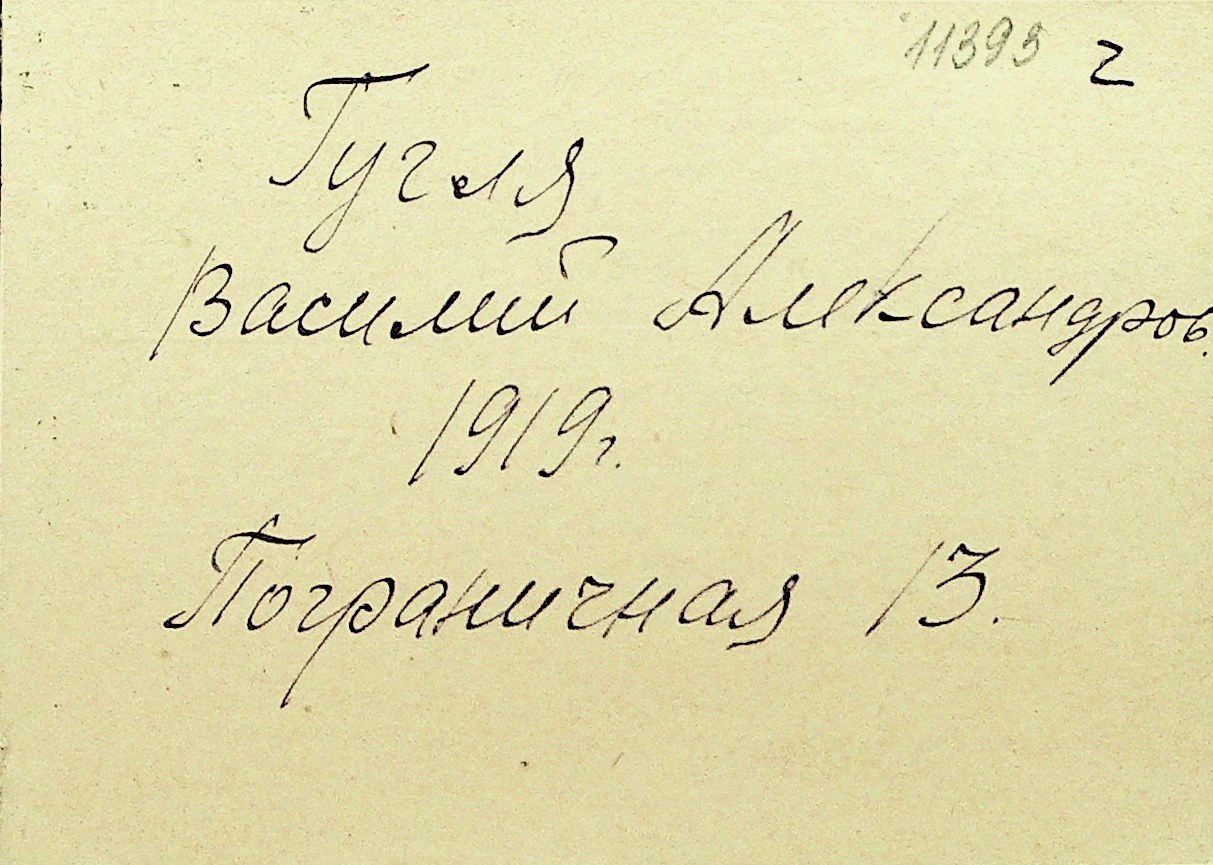 11393 г
Гугля
Василий Александров.
1919г.
Пограничная 13.